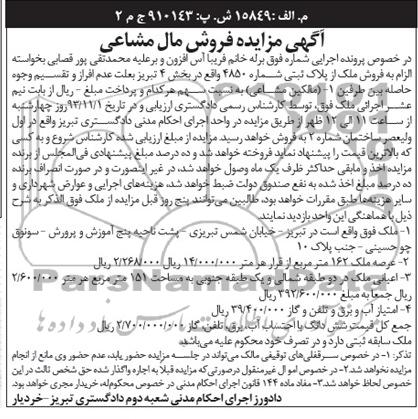 م. الف: ۱۵۸۴۹ ش. پ: ۹۱۰۱۴۳ ج م ۲
آگهی مزایده فروش مال مشاعی
در خصوص پرونده اجرایی شماره فوق برله خانم فریبا آس افزون و برعلیه محمدتقی پور قصابی بخواسته
الزام به فروش ملک از پلاک ثبتی شماره ۴۸۵۰ واقع در بخش ۴ تبریز بعلت عدم افراز و تقسیم وجوه
حاصله بین طرفین ۱- (مالکین مشاعی) به نسبت سهم هرکدام و پرداخت مبلغ - ریال از بابت نیم
عشر اجرائی ملک فوق، توسط کارشناس رسمی دادگستری ارزیابی و در تاریخ ۹۳/۱۱/۱ روز چهارشنبه
از ساعت ۱۱ الی ۱۲ ظهر از طریق مزایده در واحد اجرای احکام مدنی دادگستری تبریز واقع در اول
ولیعصر ساختمان شماره ۲ به فروش خواهد رسید. مزایده از مبلغ ارزیابی شده کارشناس شروع و به کسی
که بالاترین قیمت را پیشنهاد نماید فروخته خواهد شد و ده درصد مبلغ پیشنهادی فی المجلس از برنده
مزایده اخذ و مابقی حداکثر ظرف یک ماه وصول خواهد شد، در غیر اینصورت و در صورت انصراف برنده
ده درصد مبلغ اخذ شده به نفع صندوق دولت ضبط خواهد شد، هزینه‌های اجرایی و عوارض شهرداری و
سایر هزینه‌ها طبق مقررات خواهد بود، طالبین می‌توانند پنج روز قبل مزایده از ملک فوق الذکر به شرح
ذیل با هماهنگی این واحد بازدید نمایند.
۱- ملک فوق واقع است در تبریز - خیابان شمس تبریزی - پشت ناحیه پنج آموزش و پرورش - سونوق
چو حسینی - جنب پلاک ۱۰
۲- عرصه ملک ۱۶۲ متر مربع از قرار هر متر ۱۴/۰۰۰/۰۰۰ ریال ۲/۲۶۸/۰۰۰ ریال
۳- اعیانی ملک در دو طبقه شمالی و یک طبقه جنوبی به مساحت ۱۵۱ متر مربع هر متر ۲/۶۰۰/۰۰۰
ریال جمعا به مبلغ ۳۹۲/۶۰۰/۰۰۰ ریال
۴- امتیاز آب و برق و تلفن و گاز ۳۹/۴۰۰/۰۰۰ ریال
جمع کل قیمت شش دانگ با احتساب آب، برق، تلفن، گاز ۲/۷۰۰/۰۰۰/۰۰۰ ریال
ملک سابقه ثبتی دارد و در تصرف خود محکوم علیه می‌باشد.
تذکر: ۱- در خصوص سرقفلی‌های توقیفی مالک می‌تواند در جلسه مزایده حضور یابد، عدم حضور وی مانع از انجام
مزایده نخواهد شد. ۲- در خصوص اموال غیرمنقول درصورتی که مزایده قبلا به اجاره واگذار شده حق شخص ثالث در این
خصوص لحاظ خواهد شد. ۳- مفاد ماده ۱۴۴ قانون اجرای احکام مدنی در خصوص محکوم‌له، خریدار مجری خواهد بود.
دادورز اجرای احکام مدنی شعبه دوم دادگستری تبریز - خردیار